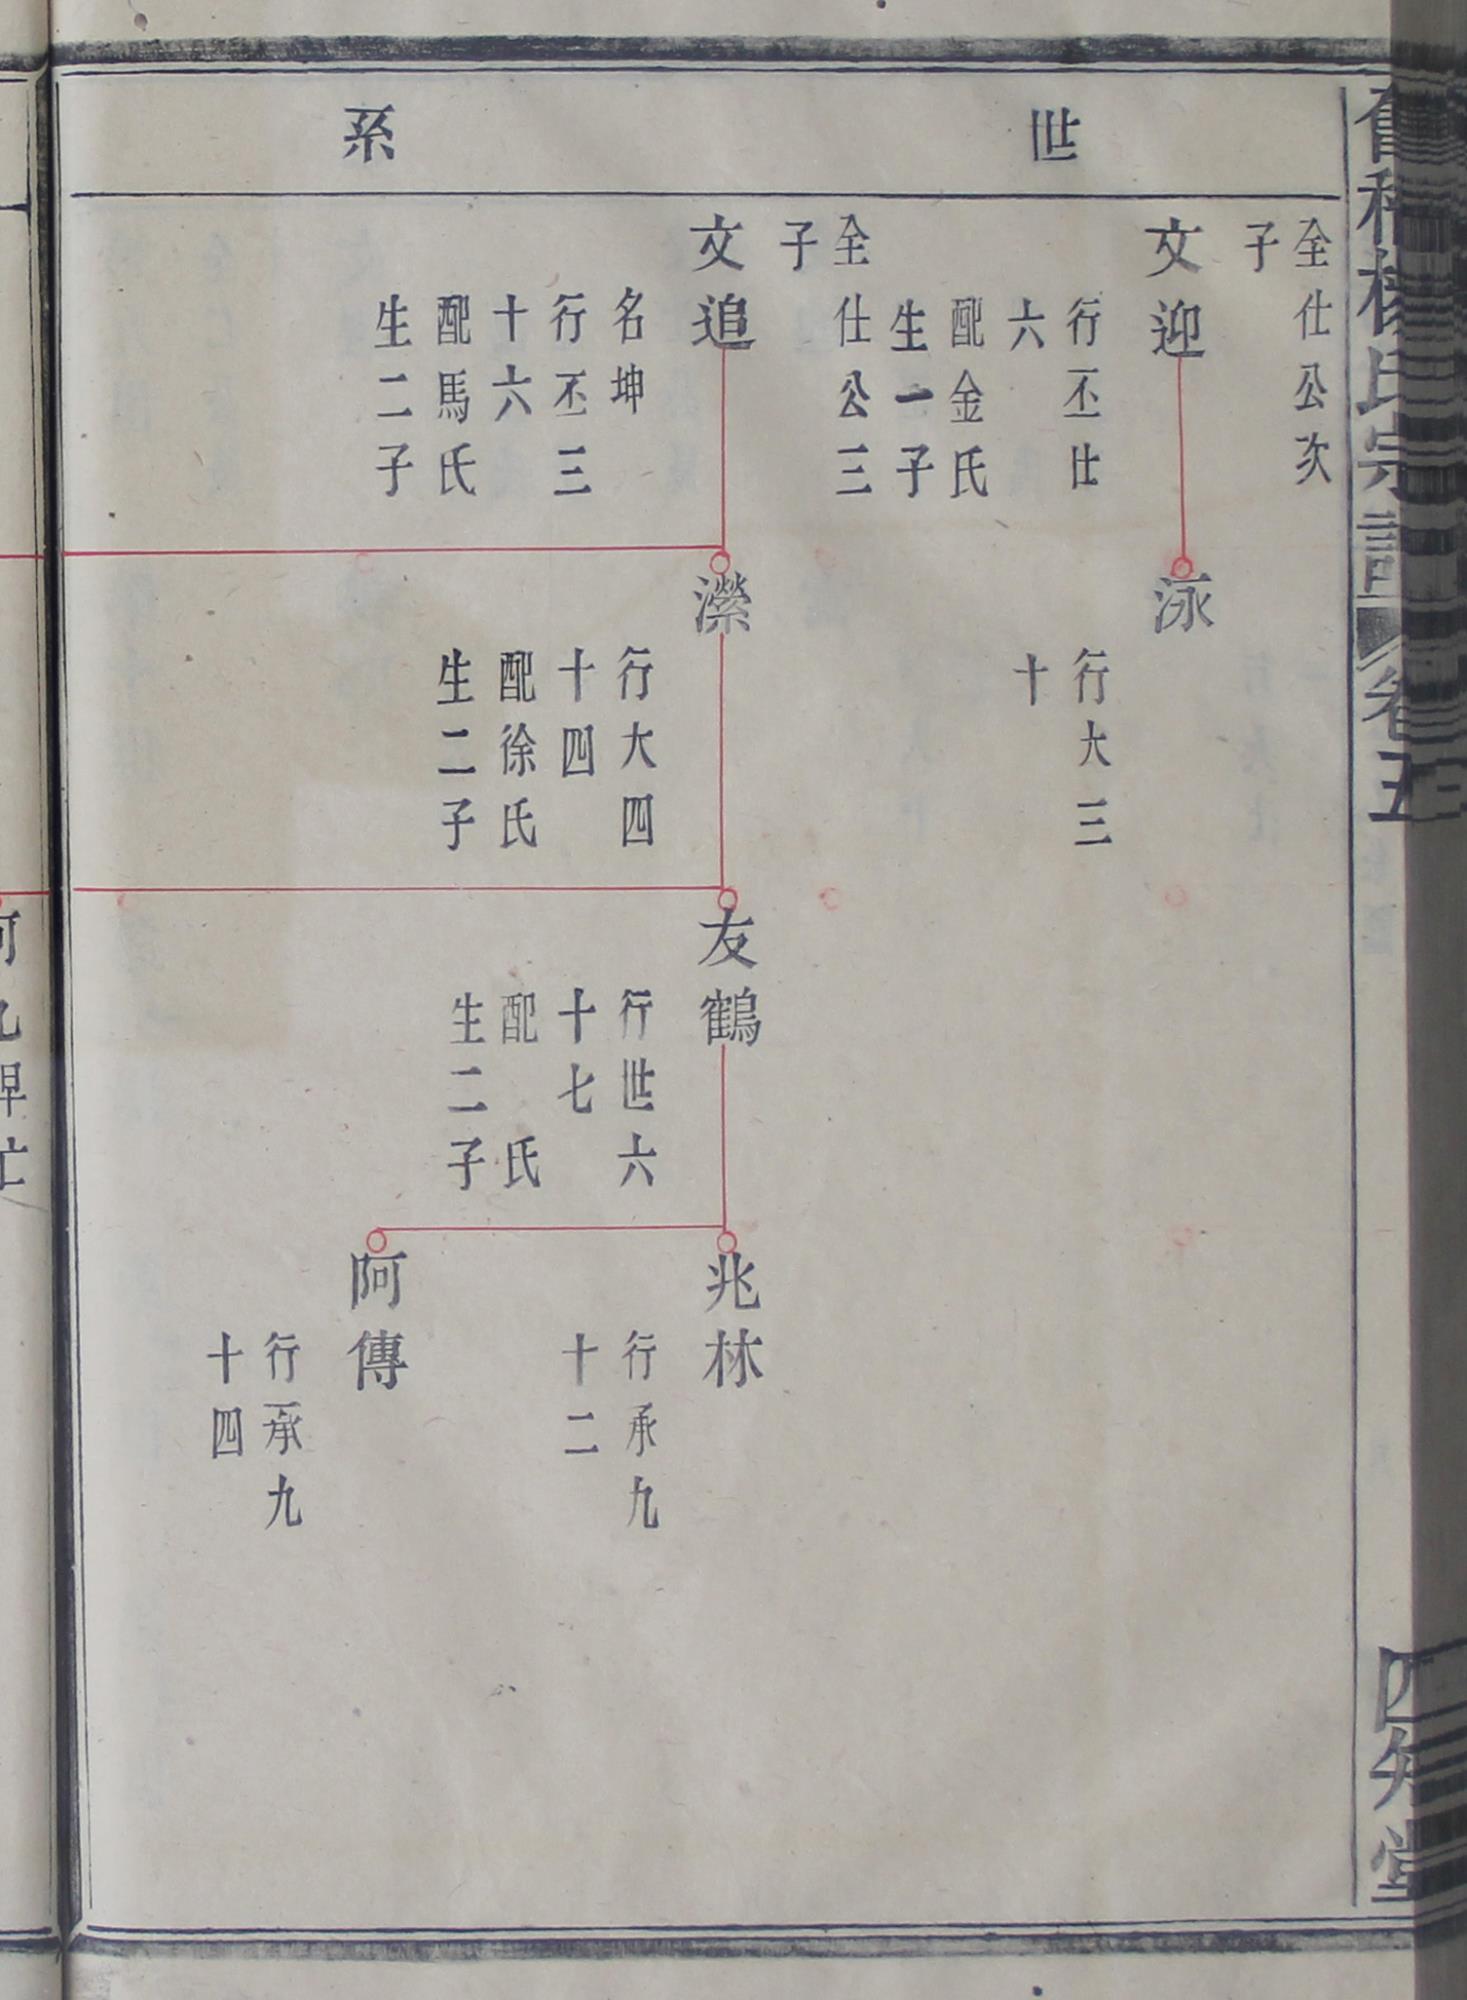 世系
全仕公次
子
文迎
行丕仕
六
配金氏
生一子
全仕公三
子
文追
名坤
行丕三
十六
配馬氏
生二子
泳
行大三
十
濴
行大四
十四
配徐氏
生二子
友鶴
行世六
十七
配 氏
生二子
兆林
行承九
十二
阿傳
行承九
十四
楊氏宗譜
卷五
四知堂